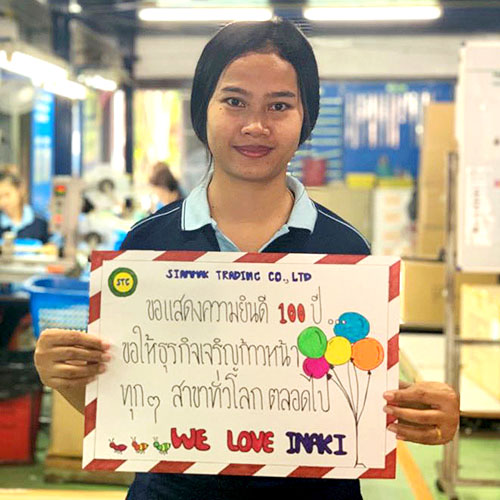 STC
SIAMMAK TRADING CO., LTD
ขอแสดงความยินดี 100 ปี
ขอให้ธุรกิจเจริญก้าวหน้า
ทุกๆ สาขาทั่วโลก ตลอดไป
WE LOVE INAKI